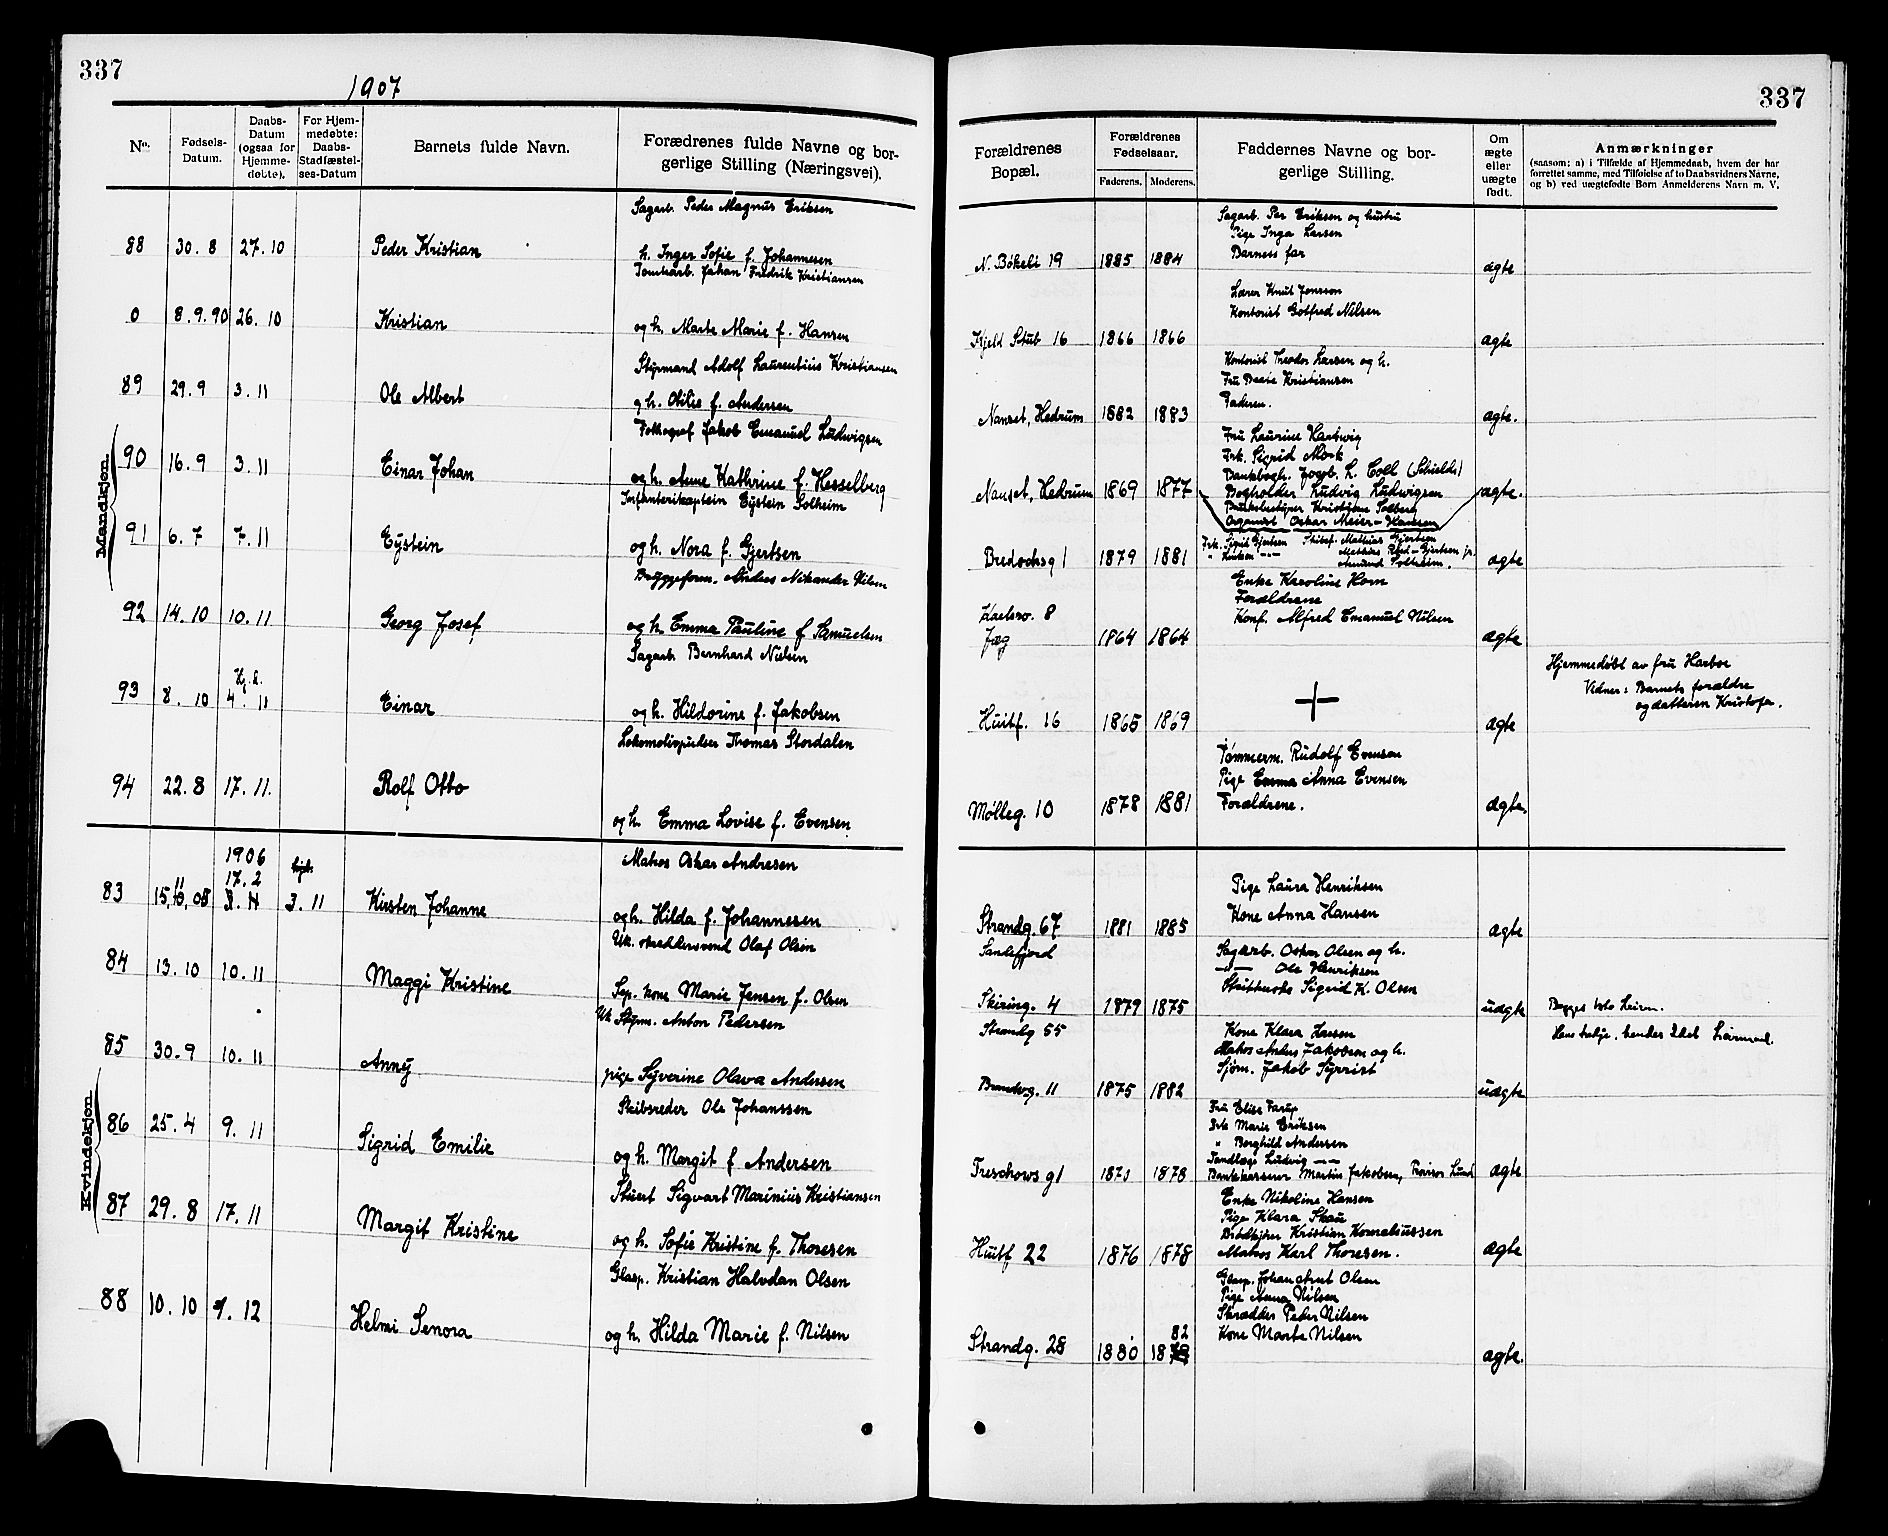 337
1907
No.
Fødsels-
Datum.
Daabs-
Datum
(ogsaa for
Hjemme-
døbte).
For Hjem-
medøbte:
Daabs-
Stadfæstel-
ses-Datum
Barnets fulde Navn.
Forædrenes fulde Navne og bor-
gerlige Stilling (Næringsvei).
Mandkjøn.
Sagarb. Peder Magnus Eriksen
88 30. 8 27. 10 Peder Kristian h. Inger Sofie f. Johannesen
Tomtarb. Johan Fredrik Kristiansen
0 8. 9. 90 26. 10 Kristian og h. Marte Marie f. Hansen
Styrmand Adolf Laurentius Kristiansen
89 29. 9 3. 11 Ole Albert og h. Otilie f. Andersen
Fotograf Jakob Emanuel Ludwigsen
90 16. 9 3. 11 Einar Johan og h. Anne Kathrine f. Hesselberg
Infanterikaptein Eystein Solheim
91 6. 7 7. 11 Eystein og h. Nora f. Gjertsen
Bryggeform. Anders Nikander Nilsen
92 14. 10 10. 11 Georg Josef og h. Emma Pauline f Samuelsen
Sagarb. Bernhard Nielsen
Hj. d.
93 8. 10 4. 11 Einar og h. Hildorine f. Jakobsen
Lokomotivpudser Thomas Stordalen
94 22. 8 17. 11. Rolf Otto
og h. Emma Lovise f. Evensen
Kvindekjøn.
1906 Matros Oskar Andresen
17. 2
83 15, 05 3. 11 Kirsten Johanne og h. Hilda f. Johannesen
Uk. skræddersvend Olaf Olsen
84 13. 10 10. 11 Maggi Kristine Sep. kone Marie Jensen f. Olsen
Uk Styrm. Anton Pedersen
85 30. 9 10. 11 Anny pige Syverine Olava Andersen
Skibsreder Ole Johanssen
86 25. 4 9. 11 Sigrid Emilie og h. Margit f Andersen
Stuert Sigvart Marinius Kristiansen
87 29. 8 17. 11 Margit Kristine og h. Sofie Kristine f. Thoresen
Glasp. Kristian Halvdan Olsen
88 10. 10 1. 12 Helmi Senora og h. Hilda Marie f. Nilsen
337
Forældrenes
Bopæl.
Forældrenes
Fødselsaar.
Faderens. Moderens.
Faddernes Navne og bor-
gerlige Stilling.
Om
ægte
eller
uægte
født.
Anmærkninger
(saasom: a) i Tilfælde af Hjemmedaab, hvem der har
forrettet samme, med Tilføielse af to Daabsvidners Navne,
og b) ved uægtefødte Børn Anmelderens Navn m. V.
Sagarb. Per Eriksen og hustru
Pige Inga Larsen
Barnets far
N. Bøkeli 19 1885 1884 ægte
Lærer Knut Jonsson
Kontorist Gotfred Nilsen
Kjeld Stub 16 1866 1866 ægte
Kontorist Theodor Larsen og h.
Fru Beate Kristiansen
Faderen.
Nanset, Hedrum 1882 1883 ægte.
Fru Laurine Hartwig
Frk. Sigrid Mørk
Bankbogh. Jogb. L. Coll (Schields)
Nanset, Hedrum 1869 1877 Bogholder Ludvig Ludwigsen ægte.
Bruksbestyrer Kristian Solberg
Organist Oskar Meier-Hansen
Frk. Sigrid Gjertsen Skibsf. Mathias Gjertsen
Mathias Rød-Gjertsen jr.
Amund Solheim.
Bredochsg 1 1879 1881 ægte
Enke Karoline Horn
Forældrene
Konf. Alfred Emanuel Nilsen
8
Jæg 1864 1864 ægte
Hjemmedøbt av fru Harboe
Vidner: Barnets forældre
og datteren Kristofa.
Huitf. 16 1865 1869 ægte
Tømmerm. Rudolf Evensen
Pige Anna Evensen
Forældrene.
Mølleg. 10 1878 1881 ægte.
Pige Laura Henriksen
Kone Anna Hansen
Strandg. 67 1881 1885 ægte
Sandefjord
Sagarb. Oskar Olsen og h.
—"— Ole Henriksen
Sigrid K. Olsen
Skiring. 4 1879 1875 uægte Begges 1ste Leierm.
Strandg 55
Kone Klara Larsen
Matros Anders Jakobsen og h.
Sjøm. Jakob Syvrist
Hans tredje, hendes 2det Leiermaal.
11 1875 1882 uægte
Fru Elise Farup
Frk Marie Eriksen
" Borghild Andersen
Tandlæge Ludvig —"—
Treschows g 1 1871 1878 Bankkasserer Martin Jakobsen, Provisor Lund ægte
Enke Nikoline Hansen
Pige Klara Skau
Kristian Korneliussen
Huitf 22 1876 1878 Matros Karl Thoresen. ægte
Glasp. Johan Arnt Olsen
Pige Anna Nilsen
Skrædder Peder Nilsen
Kone Marte Nilsen
82
Strandg. 28 1880 18 ægte.